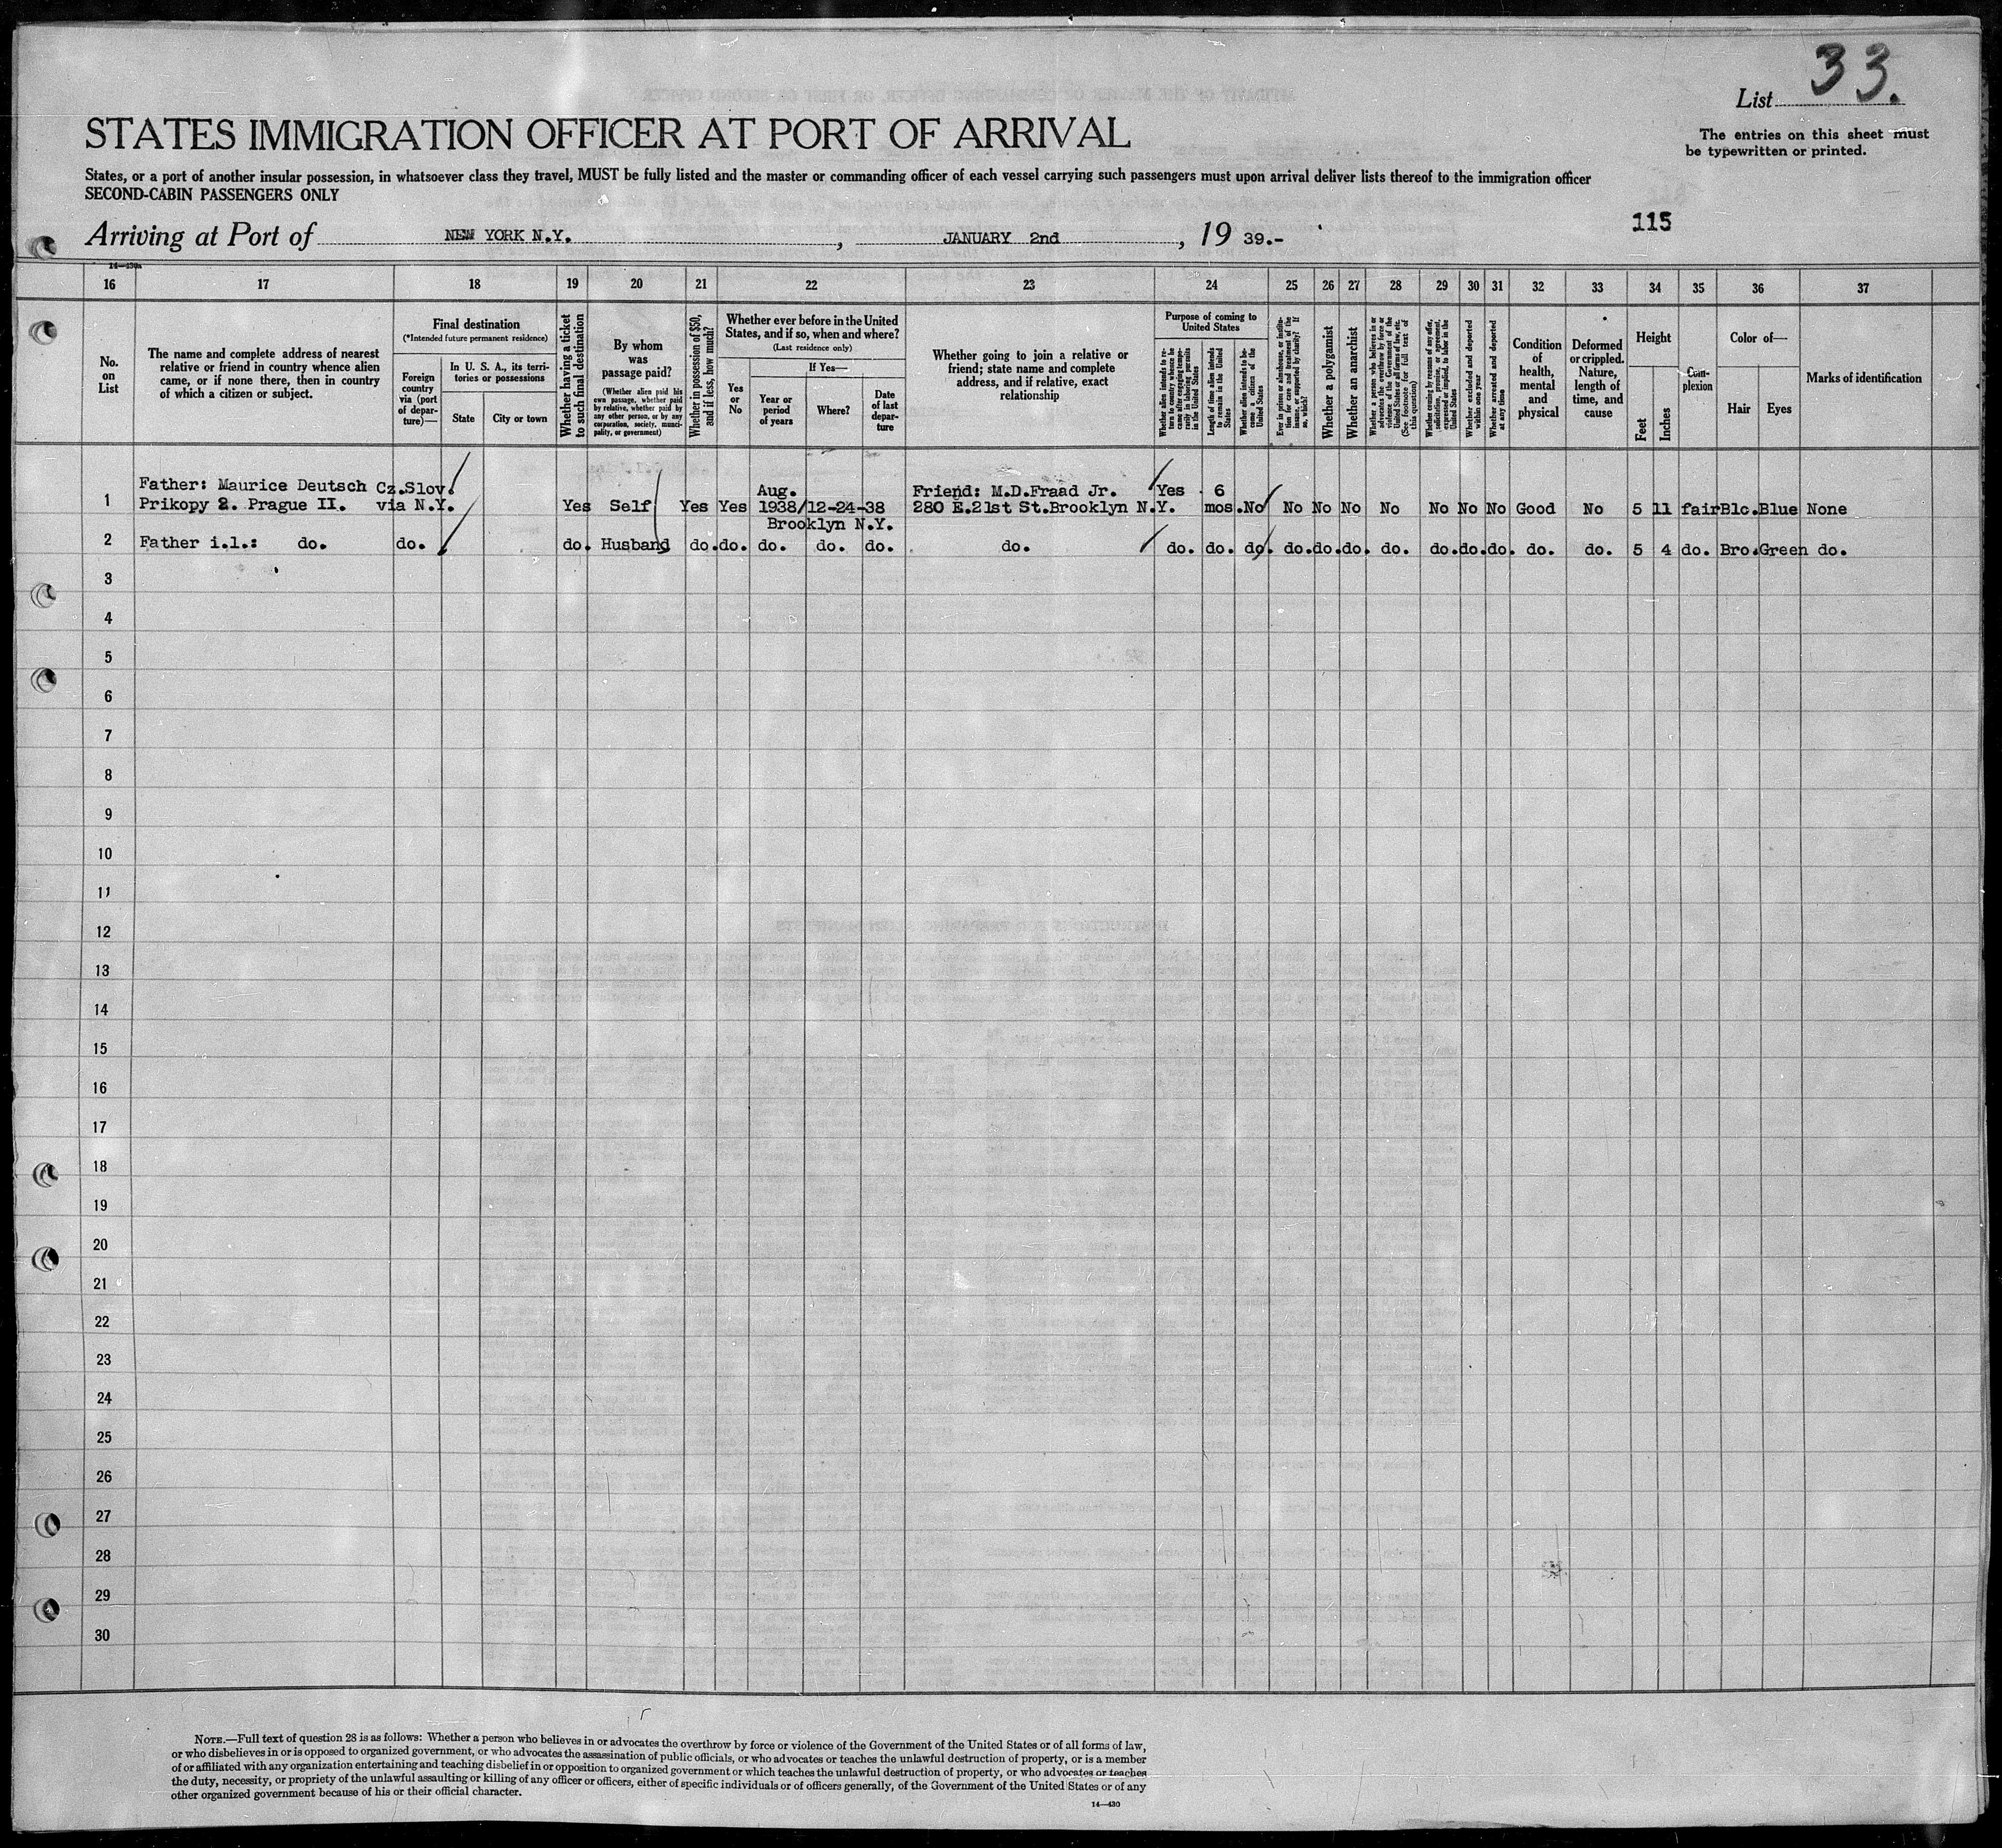 33.
List
STATES IMMIGRATION OFFICER AT PORT OF ARRIVAL
The entries on this sheet must
be typewritten or printed.
States, or a port of another insular possession, in whatsoever class they travel, MUST be fully listed and the master or commanding officer of each vessel carrying such passengers must upon arrival deliver lists thereof to the immigration officer
SECOND-CABIN PASSENGERS ONLY
115
Arriving at Port of NEW YORK N.Y. , JANUARY 2nd , 19 39.-
14—430a
16 17 18 19 20 21 22 23 24 25 26 27 28 29 30 31 32 33 34 35 36 37
No.
on
List
The name and complete address of nearest
relative or friend in country whence alien
came, or if none there, then in country
of which a citizen or subject.
Final destination
(*Intended future permanent residence)
Foreign
country
via (port
of depar-
ture)—
In U. S. A., its terri-
tories or possessions
State
City or town
Whether having a ticket
to such final destination
By whom
was
passage paid?
(Whether alien paid his
own passage, whether paid
by relative, whether paid by
any other person, or by any
corporation, society, munici-
pality, or government)
Whether in possession of $50,
and if less, how much?
Whether ever before in the United
States, and if so, when and where?
(Last residence only)
Yes
or
No
If Yes—
Year or
period
of years
Where?
Date
of last
depar-
ture
Whether going to join a relative or
friend; state name and complete
address, and if relative, exact
relationship
Purpose of coming to
United States
Whether alien intends to re-
turn to country whence he
came after engaging tempo-
rarily in laboring pursuits
in the United States
Length of time alien intends
to remain in the United
States
Whether alien intends to be-
come a citizen of the
United States
Ever in prison or almshouse, or institu-
tion for care and treatment of the
insane, or supported by charity? If
so, which?
Whether a polygamist
Whether an anarchist
Whether a person who believes in or
advocates the overthrow by force or
violence of the Government of the
United States or all forms of law, etc.
(See footnote for full text of
this question)
Whether coming by reason of any offer,
solicitation, promise, or agreement,
expressed or implied, to labor in the
United States
Whether excluded and deported
within one year
Whether arrested and deported
at any time
Condition
of
health,
mental
and
physical
Deformed
or crippled.
Nature,
length of
time, and
cause
Height
Feet
Inches
Com-
plexion
Color of—
Hair
Eyes
Marks of identification
Father: Maurice Deutsch Cz.Slov. Aug. Friend: M.D.Fraad Jr. Yes 6
1 Prikopy 2. Prague II. via N.Y. Yes Self Yes Yes 1938/12-24-38 280 E.21st St.Brooklyn N.Y. mos. No No No No No No No No Good No 5 11 fair Blc. Blue None
Brooklyn N.Y.
2 Father i.l.: do. do. do. Husband do. do. do. do. do. do. do. do. do. do. do. do. do. do. do. do. do. do. 5 4 do. Bro. Green do.
3
4
5
6
7
8
9
10
11
12
13
14
15
16
17
18
19
20
21
22
23
24
25
26
27
28
29
30
NOTE.—Full text of question 28 is as follows: Whether a person who believes in or advocates the overthrow by force or violence of the Government of the United States or of all forms of law,
or who disbelieves in or is opposed to organized government, or who advocates the assassination of public officials, or who advocates or teaches the unlawful destruction of property, or is a member
of or affiliated with any organization entertaining and teaching disbelief in or opposition to organized government or which teaches the unlawful destruction of property, or who advocates or teaches
the duty, necessity, or propriety of the unlawful assaulting or killing of any officer or officers, either of specific individuals or of officers generally, of the Government of the United States or of any
other organized government because of his or their official character.
14—430